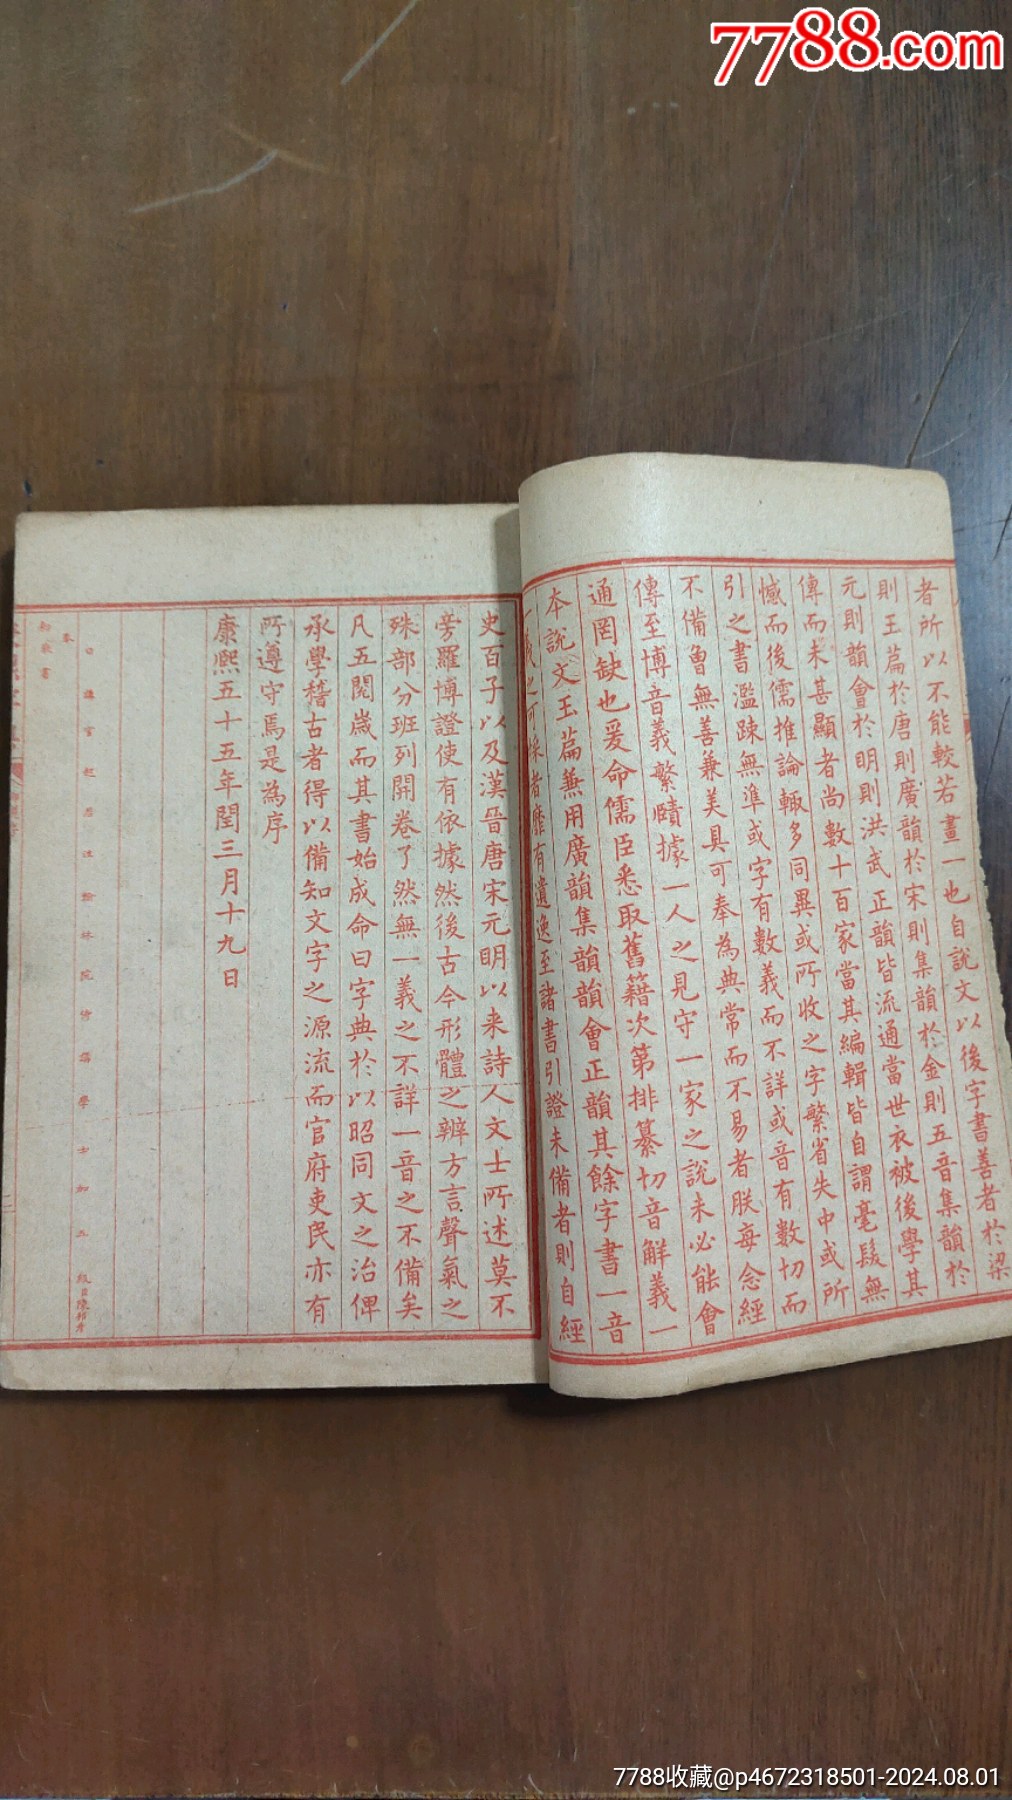 7788.com
者所以不能較若畫一也自說文以後字書善者於梁
則玉篇於唐則廣韻於宋則集韻於金則五音集韻於
元則韻會於明則洪武正韻皆流通當世衣被後學其
傳而未甚顯者尚數十百家當其編輯皆自謂毫髮無
憾而後儒推論輒多同異或所收之字繁省失中或所
引之書濫踈無準或字有數義而不詳或音有數切而
不備曾無善兼美具可奉為典常而不易者朕每念經
傳至博音義繁賾據一人之見守一家之說未必能會
通罔缺也爰命儒臣悉取舊籍次第排纂切音解義一
本說文玉篇兼用廣韻集韻韻會正韻其餘字書一音
一義之可採者靡有遺逸至諸書引證未備者則自經
史百子以及漢晉唐宋元明以来詩人文士所述莫不
旁羅博證使有依據然後古今形體之辨方言聲氣之
殊部分班列開卷了然無一義之不詳一音之不備矣
凡五閱歲而其書始成命曰字典於以昭同文之治俾
承學稽古者得以備知文字之源流而官府吏民亦有
所遵守焉是為序
康熙五十五年閏三月十九日
日講官起居注翰林院侍講學士加五級臣陳邦彥
奉
勅敬書
7788收藏@p4672318501-2024.08.01